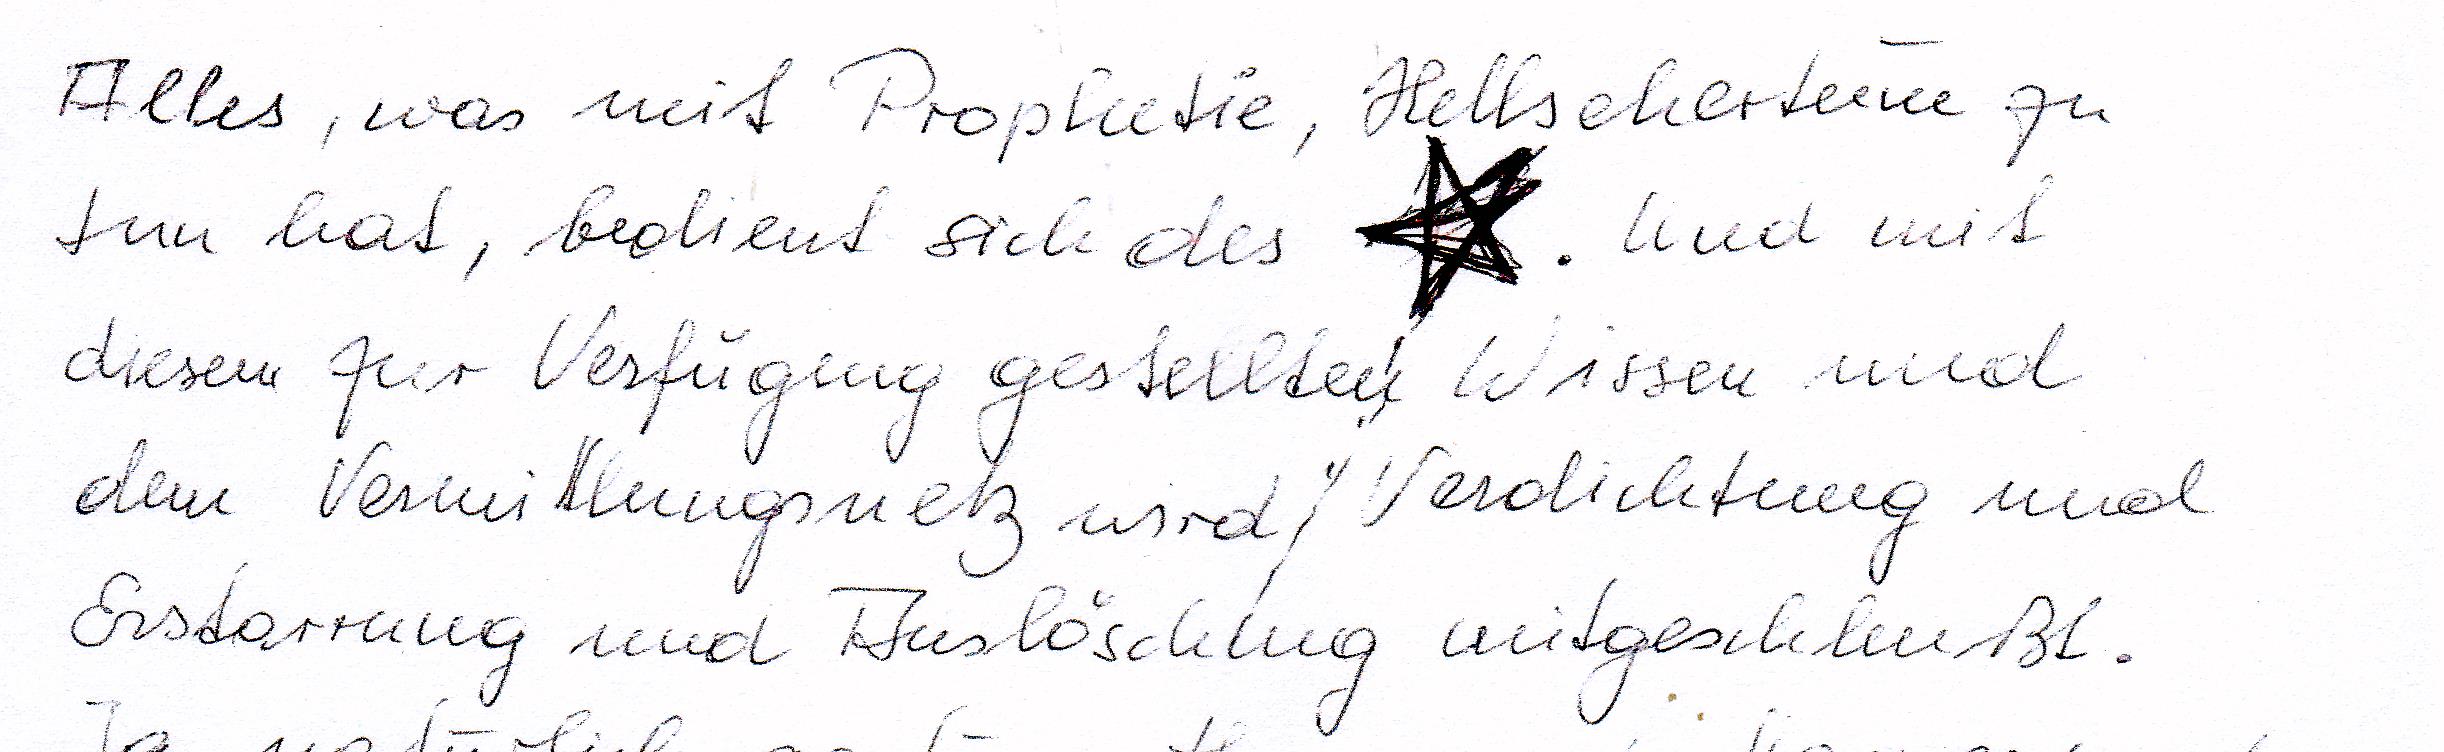 Alles, was mit Prophetie, Hellsehertum zu
tun hat, bedient sich des ★. Und mit
diesem zur Verfügung gestellten Wissen und
dem Vermittlungsnetz wird, Verdichtung und
Erstarrung und Auslöschung mitgeschleußt.
Ja natürlich